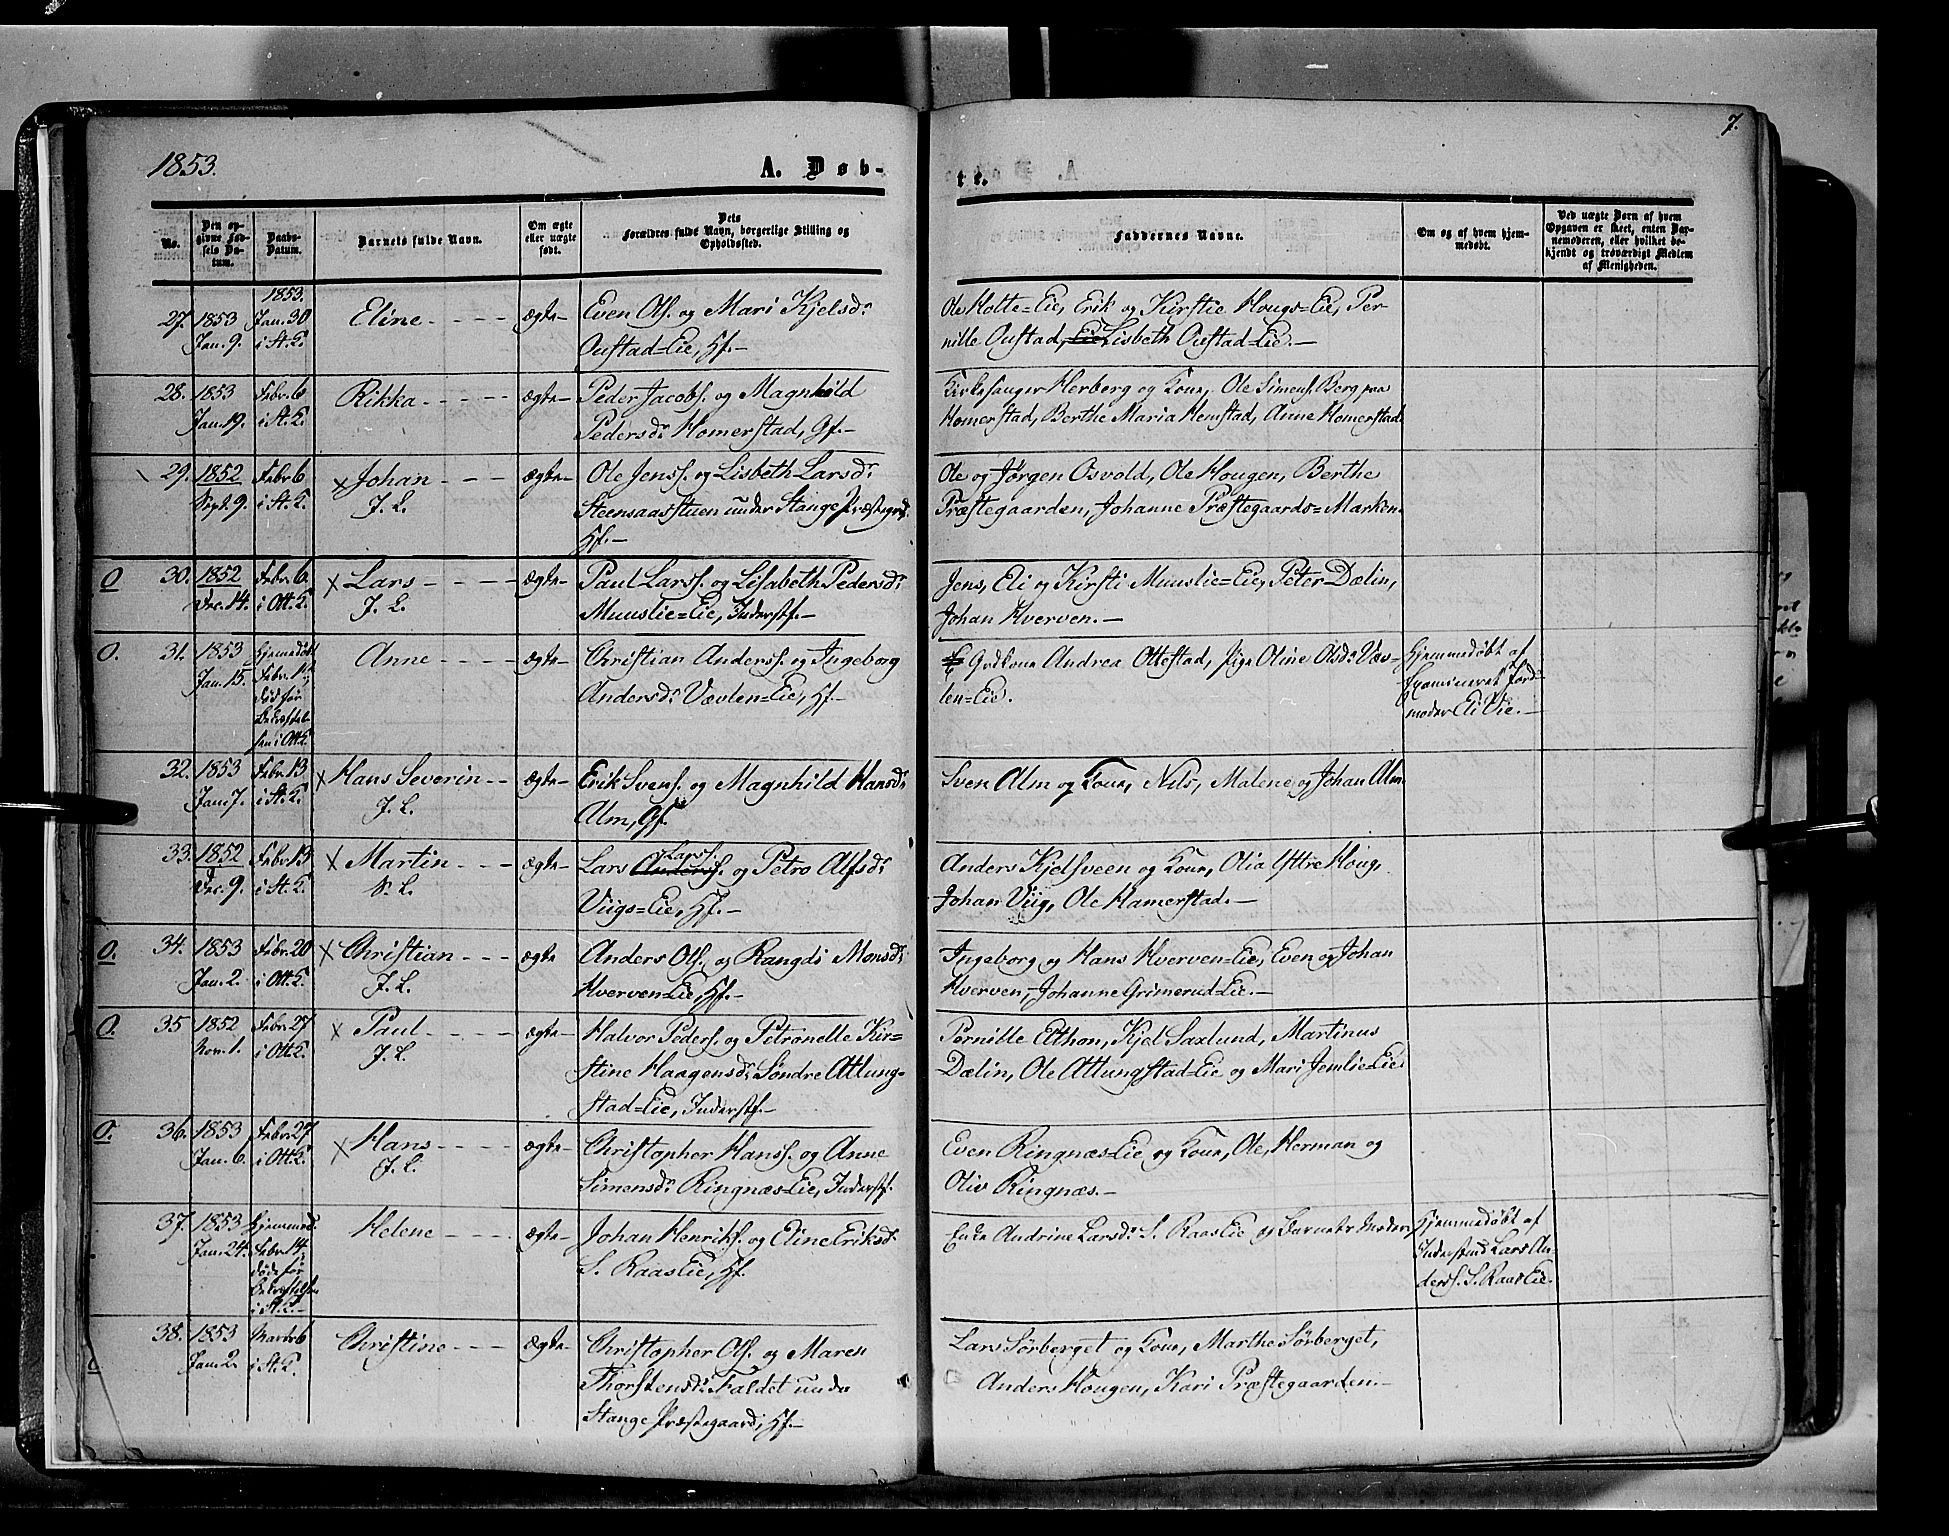 1853.
A. Døb-
te.
7.
No.
Den op-
givne Fød-
sels Da-
tum.
Daabs-
Datum.
Barnets fulde Navn.
Om ægte
eller uægte
født.
Dets
Forældres fulde Navn, borgerlige Stilling og
Opholdssted.
Faddernes Navne.
Om og af hvem hjem-
medøbt.
Ved uægte Børn af hvem
Opgaven er skeet, enten Bar-
nemoderen, eller hvilket be-
kjendt og troværdigt Medlem
af Menigheden.
27. 1853 Jan. 9.
1853. Jan. 30 i St. K.
Eline
ægte
Even Ols. og Mari Kjelsd:
Oustad=Eie, Hf.
Ole Holte=Eie, Erik og Kirstie Hougs=Eie, Per-
nille Oustad, Eie Lisbeth Oustad=Eie.
28. 1853 Jan. 19.
Febr. 6 i St. K.
Rikka
ægte
Peder Jacobs. og Magnhild
Pedersd: Homerstad, Gf.
Kirkesanger Herberg og Kone, Ole Simens. Berg paa
Homerstad, Berthe Maria Hemstad, Anne Homerstad.
29. 1852 Sept. 9.
Febr. 6 i St. K.
x Johan
J. L.
ægte
Ole Jenss. og Lisbeth Larsd:
Steensaasstuen under Stange Præstegrd.
Hf.
Ole og Jørgen Osvold, Ole Hougen, Berthe
Præstegaarden, Johanne Præstegaards=Marken.
O 30. 1852 Dec. 14.
Febr. 6. i Ott. K.
x Lars
J. L.
ægte
Paul Larss. og Lisabeth Pedersd:
Muuslie=Eie, Inderstf.
Jens, Eli og Kirsti Muuslie=Eie, Peter Dælin,
Johan Hverven.
O. 31. 1853 Jan. 15.
Hjemmedøbt
Febr. 14;
død før
Bekræftel-
sen i Ott. K.
Anne
ægte
Christian Anderss. og Ingeborg
Andersd: Vævlen=Eie, Hf.
Grdkone Andrea Ottestad, Pige Oline Olsd: Væv-
len=Eie.
Hjemmedøbt af
Examineret Jord-
moder Eli Vie.
32. 1853 Jan. 7.
Febr. 13 i St. K.
x Hans Severin
J. L.
ægte
Erik Svens. og Magnhild Hansd:
Alm, Gf.
Sven Alm og Kone, Nils, Malene og Johan Alm.
33. 1852 Dec. 9.
Febr. 13 i St. K.
x Martin
S. L.
ægte
Larss.
Lars Anderss. og Petro Alfsd:
Viigs=Eie, Hf.
Anders Kjelsveen og Kone, Olia Yttre Houg,
Johan Viig, Ole Hamerstad.
O. 34. 1853 Jan. 2.
Febr. 20 i Ott. K.
x Christian
J. L.
ægte
Anders Ols. og Rangdi Monsd:
Hverven=Eie, Hf.
Ingeborg og Hans Hverven=Eie, Even og Johan
Hverven, Johanne Grimerud=Eie.
O. 35 1852 Nov. 1.
Febr. 27 i Ott. K.
x Paul
J. L.
ægte
Halvor Peders. og Petronelle Kir-
stine Haagensd: Søndre Attung-
stad=Eie, Inderstf.
Pernille Elthon, Kjel Saxlund, Martinus
Dælin, Ole Attungstad=Eie og Mari Jemlie=Eie.
O. 36. 1853 Jan. 6.
Febr. 27 i Ott. K.
x Hans
J. L.
ægte
Christopher Hanss. og Anne
Simensd: Ringnæs=Eie, Inderstf.
Even Ringnæs=Eie og Kone, Ole, Herman og
Oliv Ringnæs.
37. 1853 Jan. 24.
Hjemmed.
Febr. 14.
døde før
Bekræftelsen
i St. K.
Helene
ægte
Johan Henriks. og Eline Eriksd:
S. Raas Eie, Hf.
Enke Andrine Larsd: S. Raas Eie og Barnets Moder.
Hjemmedøbt af
Inderstmd Lars An-
derss. S. Raas Eie.
38. 1853 Jan. 2.
Marts 6 i St. K.
Christine
ægte
Christopher Ols. og Maren
Thorstensd: Faldet under
Stange Præstegaard, Hf.
Lars Sørberget og Kone, Marthe Sørberget,
Anders Hougen, Kari Præstegaarden.